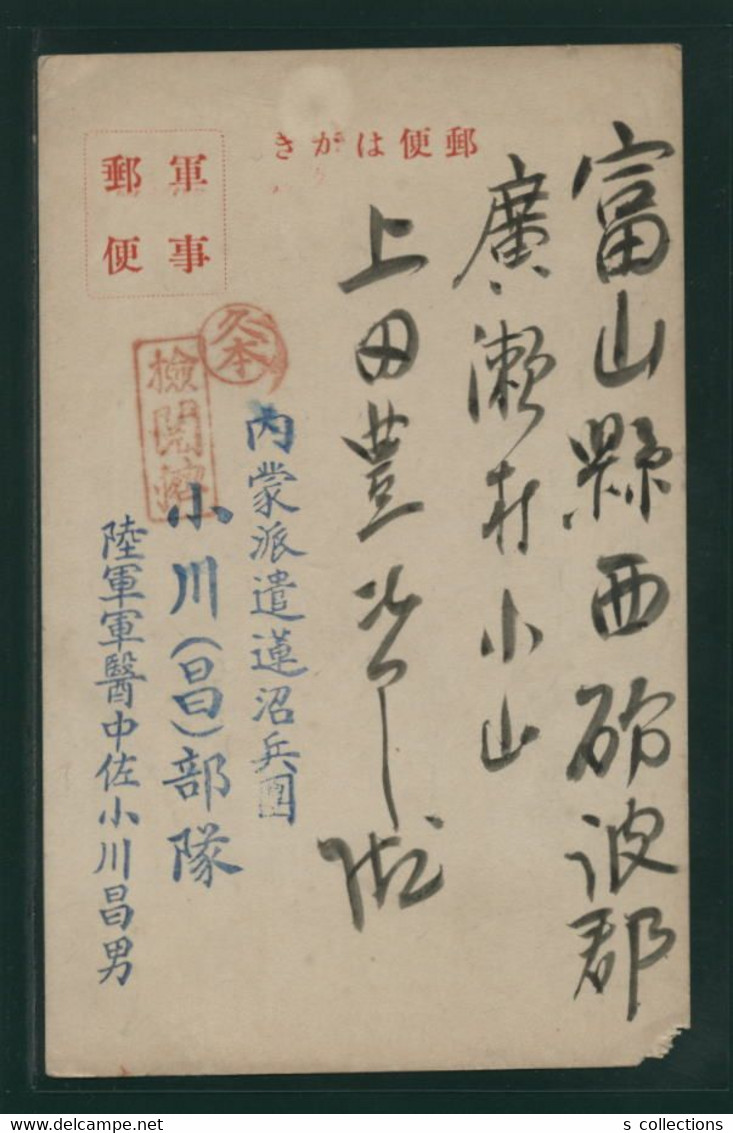 郵便はがき
軍事
郵便
富山縣西砺波郡
廣瀬村小山
上田豊次郎殿
久本
檢閲済
内蒙派遣蓮沼兵團
小川(昌)部隊
陸軍軍醫中佐小川昌男
s collections